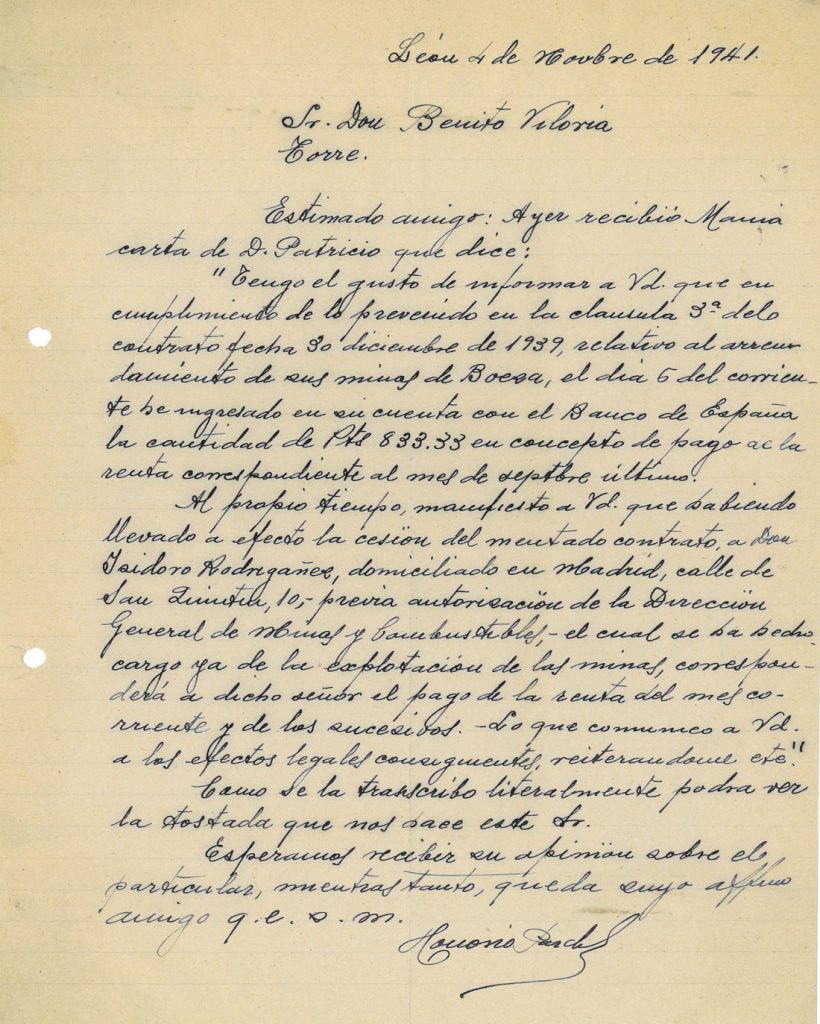 Léon 4 de Novbre de 1941.
Sr. Don Benito Viloria
Torre.
Estimado amigo: Ayer recibió Mamia
carta de D. Patricio que dice:
"Tengo el gusto de informar a Vd. que en
cumplimiento de lo prevenido en la clausula 3ª delo
contrato fecha 30 diciembre de 1939, relativo al arren-
damiento de sus minas de Boeza, el dia 5 del corrien-
te he ingresado en su cuenta con el Banco de España
la cantidad de Pts 833.33 en concepto de pago de la
renta correspondiente al mes de septbre último.
Al propio tiempo, manifiesto a Vd. que habiendo
llevado a efecto la cesión del mentado contrato, a Don
Isidoro Rodrigañez, domiciliado en Madrid, calle de
San Quintin, 10,- previa autorización de la Dirección
General de Minas y Combustibles,- el cual se ha hecho
cargo ya de la explotación de las minas, correspon-
derá a dicho señor el pago de la renta del mes co-
rriente y de los sucesivos. -Lo que comunico a Vd.
a los efectos legales consiguientes, reiterandome etc."
Como se la transcribo literalmente podra ver
la tostada que nos hace este Sr.
Esperamos recibir su opinión sobre el
particular, mientras tanto, queda suyo affmo
amigo q.e.s.m.
Honorio